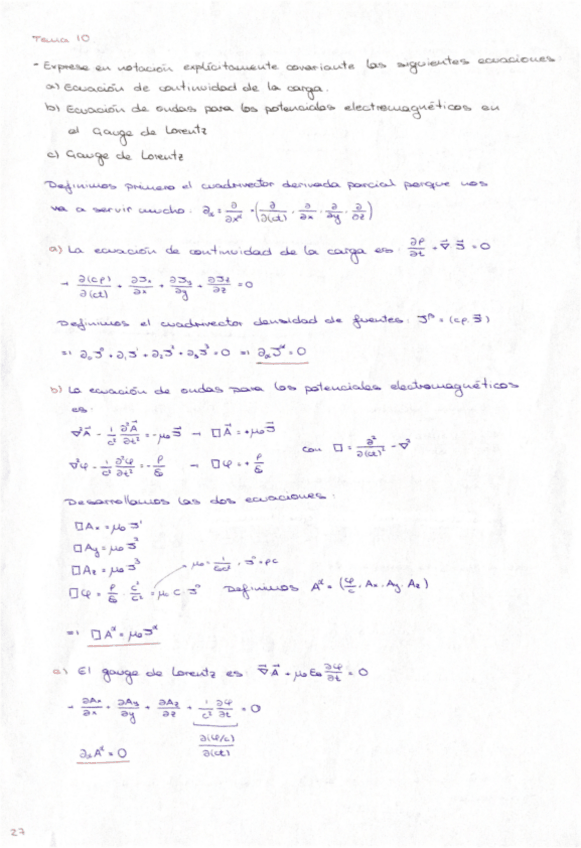 Tema 10
- Exprese en notación explícitamente covariante las siguientes ecuaciones:
a) Ecuación de continuidad de la carga.
b) Ecuación de ondas para los potenciales electromagnéticos en
el Gauge de Lorentz
c) Gauge de Lorentz
Definimos primero el cuadrivector derivada parcial porque nos
va a servir mucho. ∂α = ∂/∂x^α = (∂/∂(ct), ∂/∂x, ∂/∂y, ∂/∂z)
a) La ecuación de continuidad de la carga es: ∂ρ/∂t + ∇⃗ J⃗ = 0
→ ∂(cρ)/∂(ct) + ∂Jx/∂x + ∂Jy/∂y + ∂Jz/∂z = 0
Definimos el cuadrivector densidad de fuentes: J^μ = (cρ, J⃗)
⇒ ∂₀J⁰ + ∂₁J¹ + ∂₂J² + ∂₃J³ = 0 ⇒ ∂αJ^α = 0
b) La ecuación de ondas para los potenciales electromagnéticos
es:
∇²A⃗ - 1/c² ∂²A⃗/∂t² = -μ₀J⃗ → □A⃗ = +μ₀J⃗
con □ = ∂²/∂(ct)² - ∇²
∇²φ - 1/c² ∂²φ/∂t² = -ρ/ε₀ → □φ = +ρ/ε₀
Desarrollamos las dos ecuaciones:
□Ax = μ₀J¹
□Ay = μ₀J²
□Az = μ₀J³
μ₀ = 1/ε₀c², J⁰ = ρc
□φ = ρ/ε₀ · c²/c² = μ₀ c · J⁰ Definimos A^α = (φ/c, Ax, Ay, Az)
⇒ □A^α = μ₀J^α
c) El gauge de Lorentz es: ∇⃗A⃗ + μ₀ε₀ ∂φ/∂t = 0
→ ∂Ax/∂x + ∂Ay/∂y + ∂Az/∂z + 1/c² ∂φ/∂t = 0
∂(φ/c)/∂(ct)
∂αA^α = 0
27